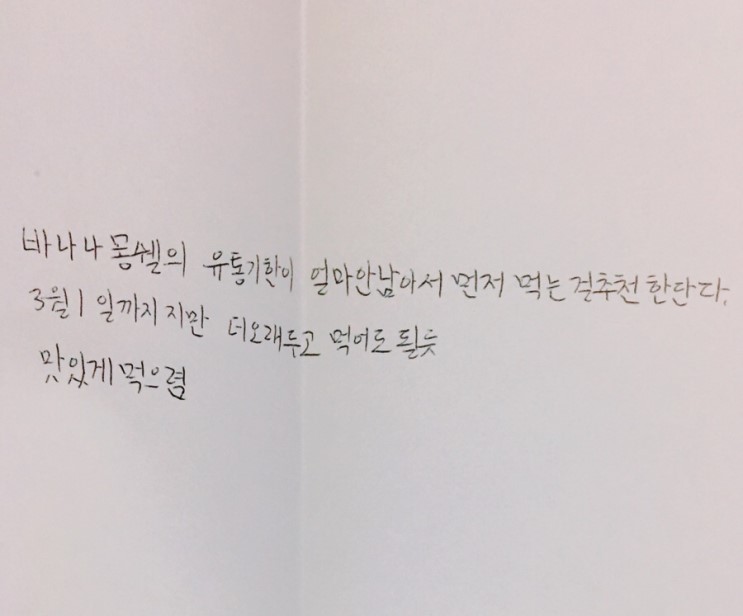 바나나 몽쉘의 유통기한이 얼마안남아서 먼저 먹는 걸추천 한단다.
3월 1일까지 지만 더오래두고 먹어도 될듯
맛있게 먹으렴